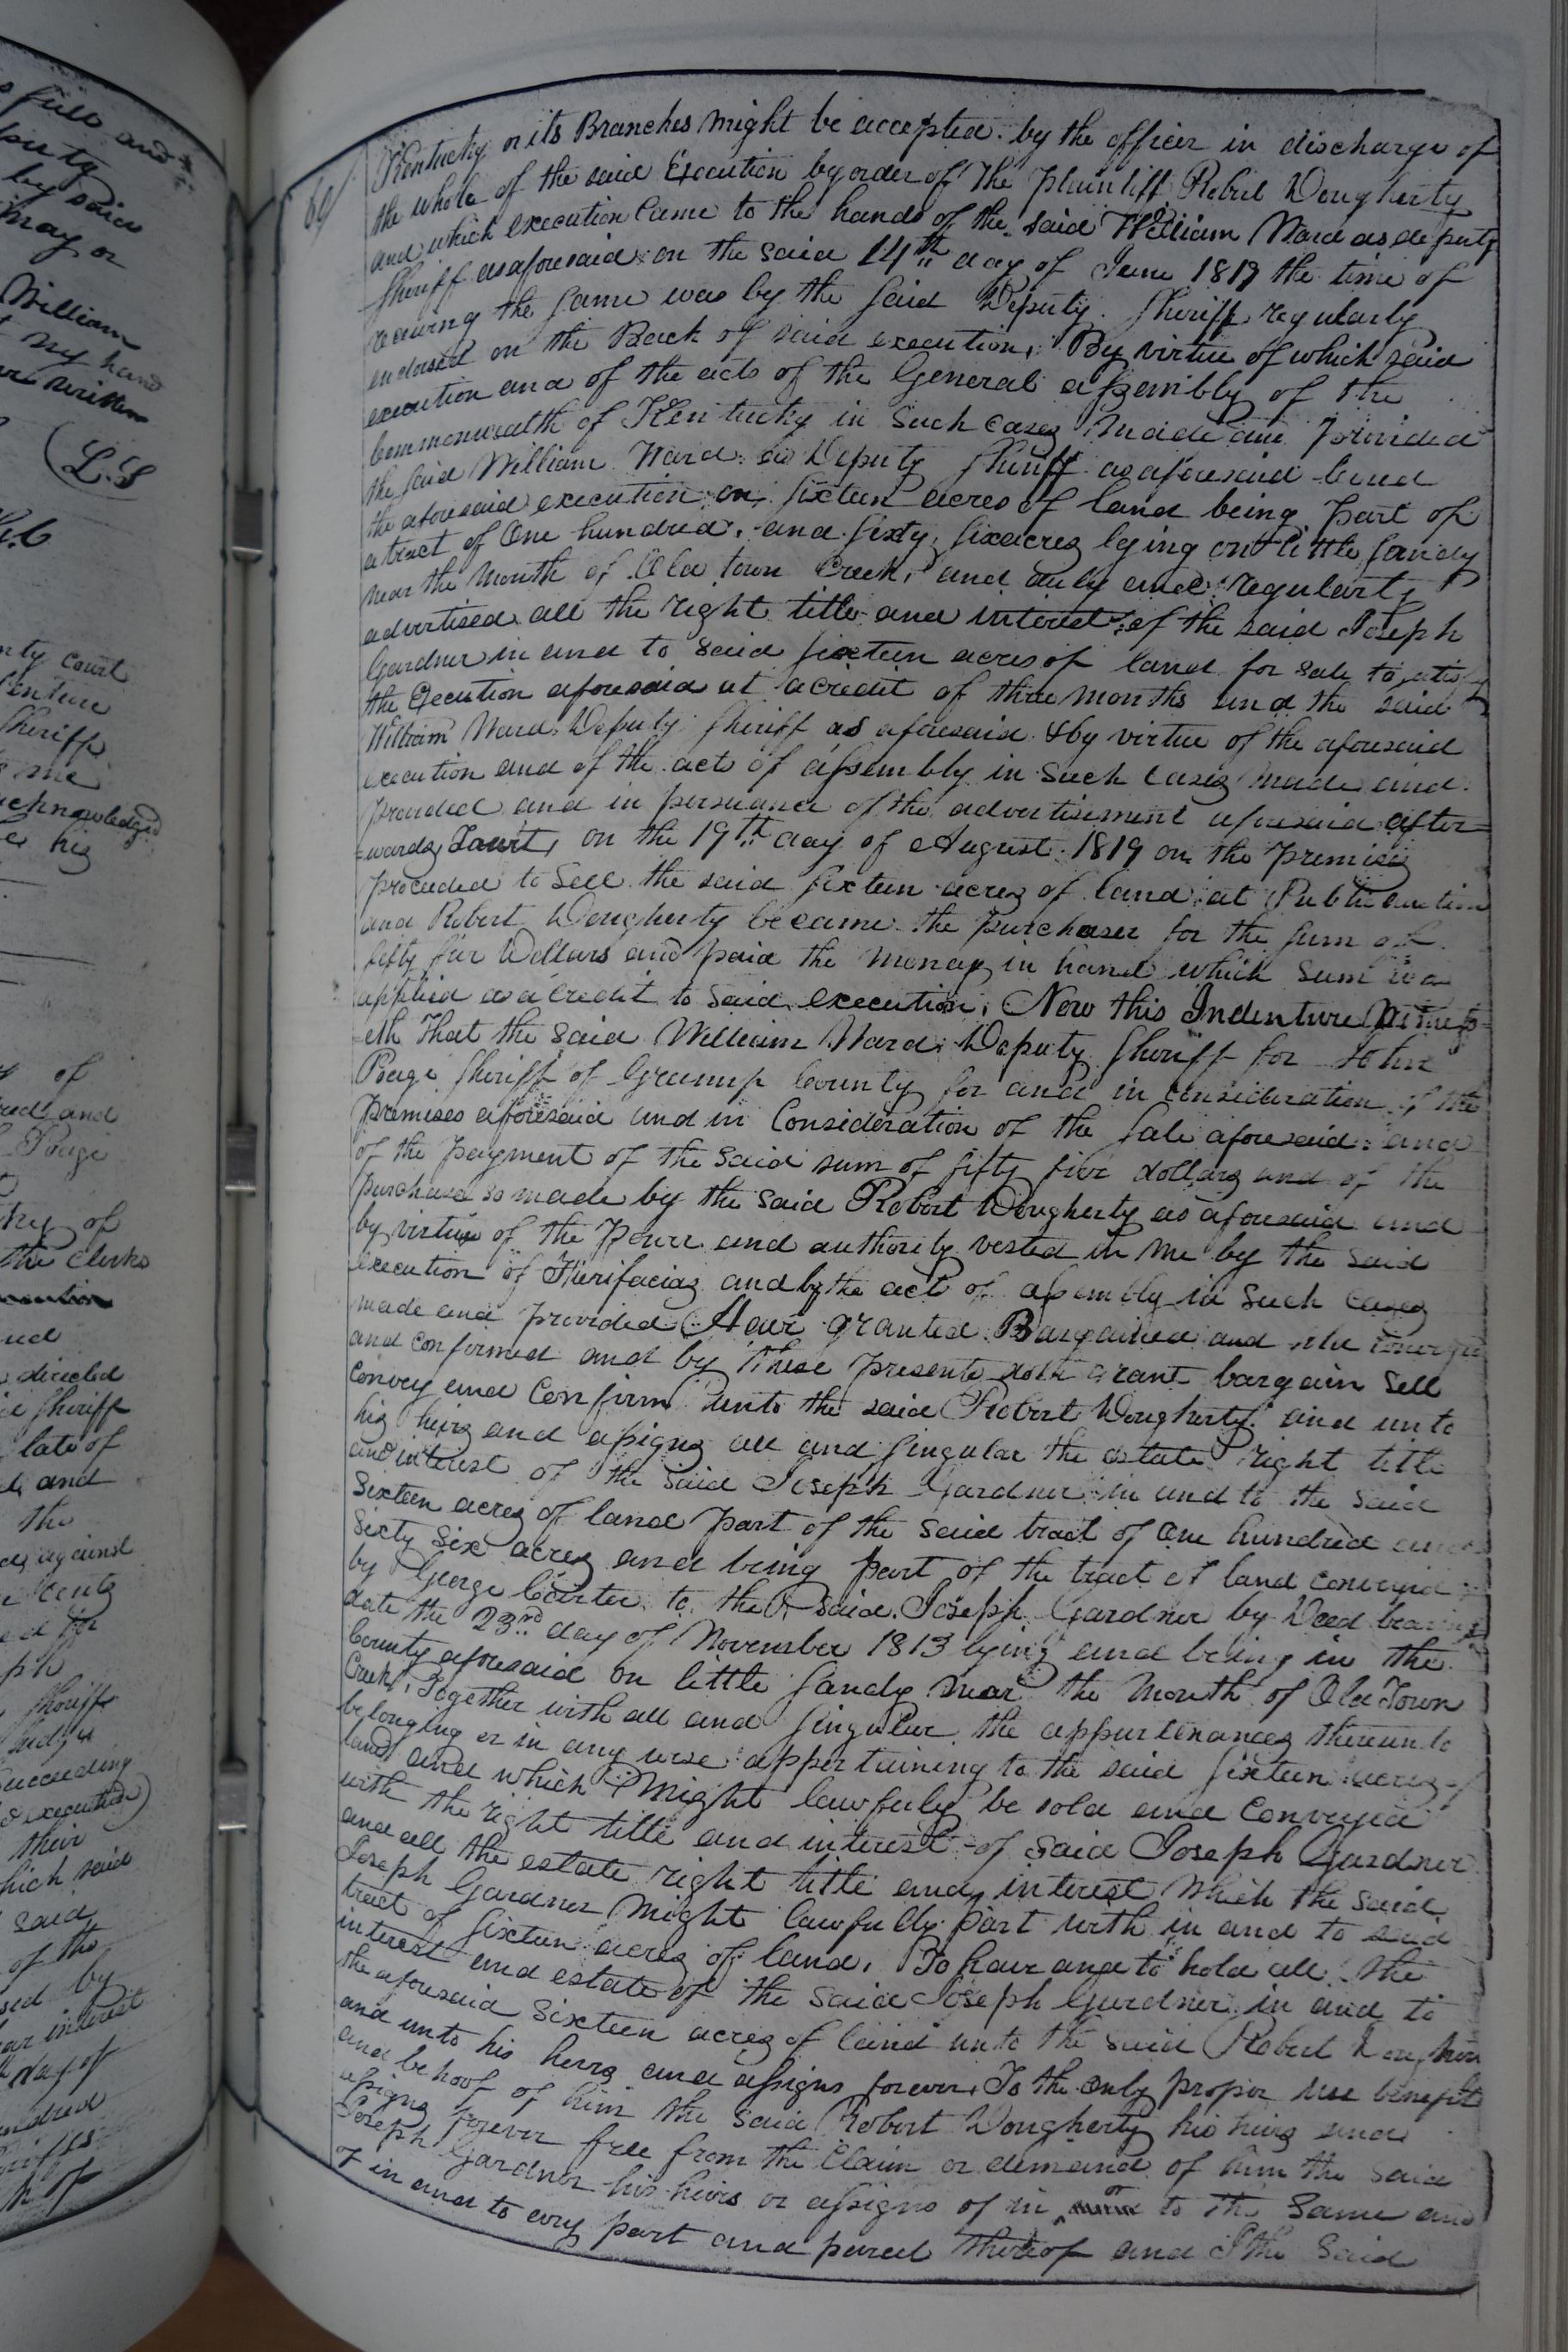 full and
by said
may or
William
my hand
written
(L.S
nty Court
Sheriff
me
acknowledged
his
of
and
Poage
of
the Clerks
directed
Sheriff
late of
and
the
against
Cents
Sheriff
succeeding
execution)
their
which said
said
of the
by
interest
day of
60
Kentucky or its Branches might be accepted by the officer in discharge of
the whole of the said Execution by order of the plaintiff Robert Dougherty
and which execution Came to the hands of the said William Ward as deputy
Sheriff as aforesaid on the said 14th day of June 1819 the time of
receiving the same was by the said Deputy Sheriff regularly
endorsed on the Back of said execution, By virtue of which said
execution and of the acts of the General assembly of the
Commonwealth of Kentucky in such cases made and provided
the said William Ward as Deputy Sheriff as aforesaid levied
the aforesaid execution on sixteen acres of land being part of
a tract of One hundred and sixty six acres lying on little Sandy
near the Mouth of Old town Creek, and duly and regularly
advertised all the right title and interest of the said Joseph
Gardner in and to said sixteen acres of land for sale to satisfy
the Execution aforesaid at a credit of three months and the said
William Ward Deputy Sheriff as aforesaid & by virtue of the aforesaid
execution and of the acts of assembly in such cases made and
provided and in persuance of the advertisement aforesaid after
=wards, Towit, on the 19th day of August 1819 on the premises
proceeded to sell the said sixteen acres of land at Public auction
and Robert Dougherty became the purchaser for the sum of
fifty five Dollars and paid the money in hand which sum was
applied as a credit to said execution, Now this Indenture Witness=
eth That the said William Ward Deputy Sheriff for John
Poage Sheriff of Greenup County for and in consideration of the
premises aforesaid and in Consideration of the sale aforesaid and
of the payment of the said sum of fifty five dollars and of the
purchase so made by the said Robert Dougherty as aforesaid and
by virtue of the Power and authority vested in me by the said
execution of Fierifacias and by the act of assembly in such cases
made and provided Have granted Bargained and
and confirmed and by these presents doth grant bargain sell
convey and confirm unto the said Robert Dougherty and unto
his heirs and assigns all and singular the estate right title
and interest of the said Joseph Gardner in and to the said
Sixteen acres of land part of the said tract of One hundred and
sixty six acres and being part of the tract of land conveyed
by George Carter to the said Joseph Gardner by Deed bearing
date the 23rd day of November 1813 lying and being in the
County aforesaid on little Sandy near the Mouth of Old Town
Creek, Together with all and singular the appurtenances thereunto
belonging or in any wise appertaining to the said sixteen acres of
land and which Might lawfuly be sold and Conveyed
with the right title and interest of said Joseph Gardner
and all the estate right title and interest which the said
Joseph Gardner Might lawfully part with in and to said
tract of sixteen acres of land, To have and to hold all the
interest and estate of the said Joseph Gardner in and to
the aforesaid sixteen acres of land unto the said Robert Dougherty
and unto his heirs and assigns forever, To the only proper use benefit
and behoof of him the said Robert Dougherty his heirs and
assigns forever free from the Claim or demand of him the said
Joseph Gardner his heirs or assigns of in or to the same and
of in and to evry part and parcel thereof and I the said